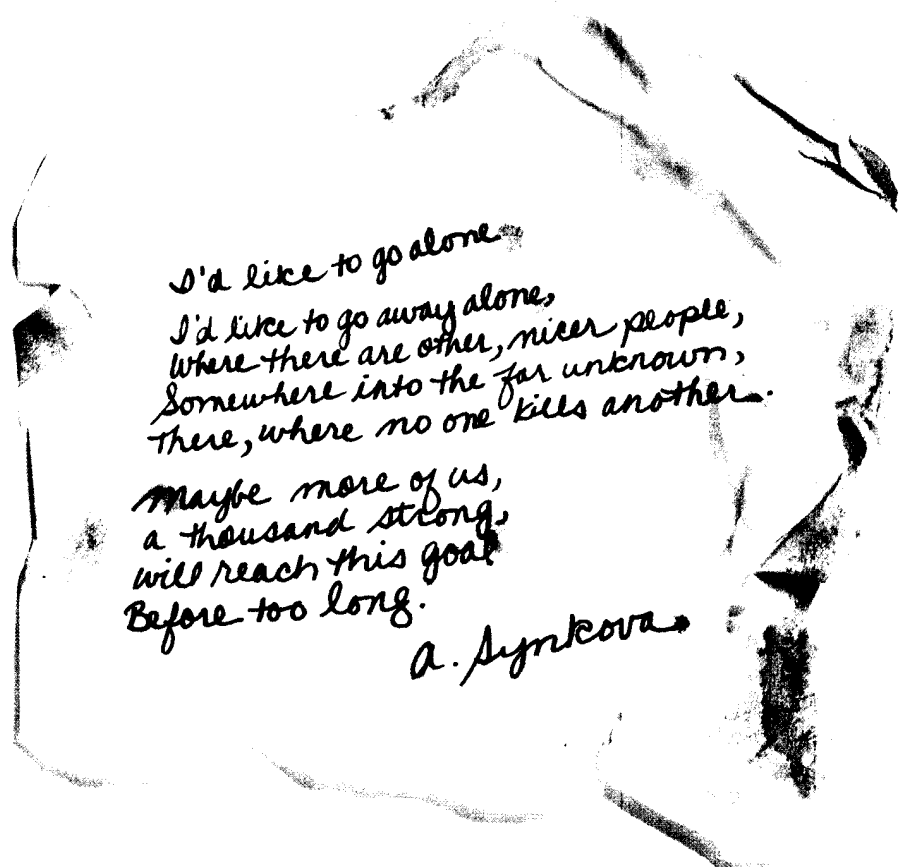 I'd like to go alone
I'd like to go away alone,
Where there are other, nicer people,
Somewhere into the far unknown,
There, where no one kills another.
Maybe more of us,
a thousand strong,
will reach this goal
Before too long.
A. Synkova